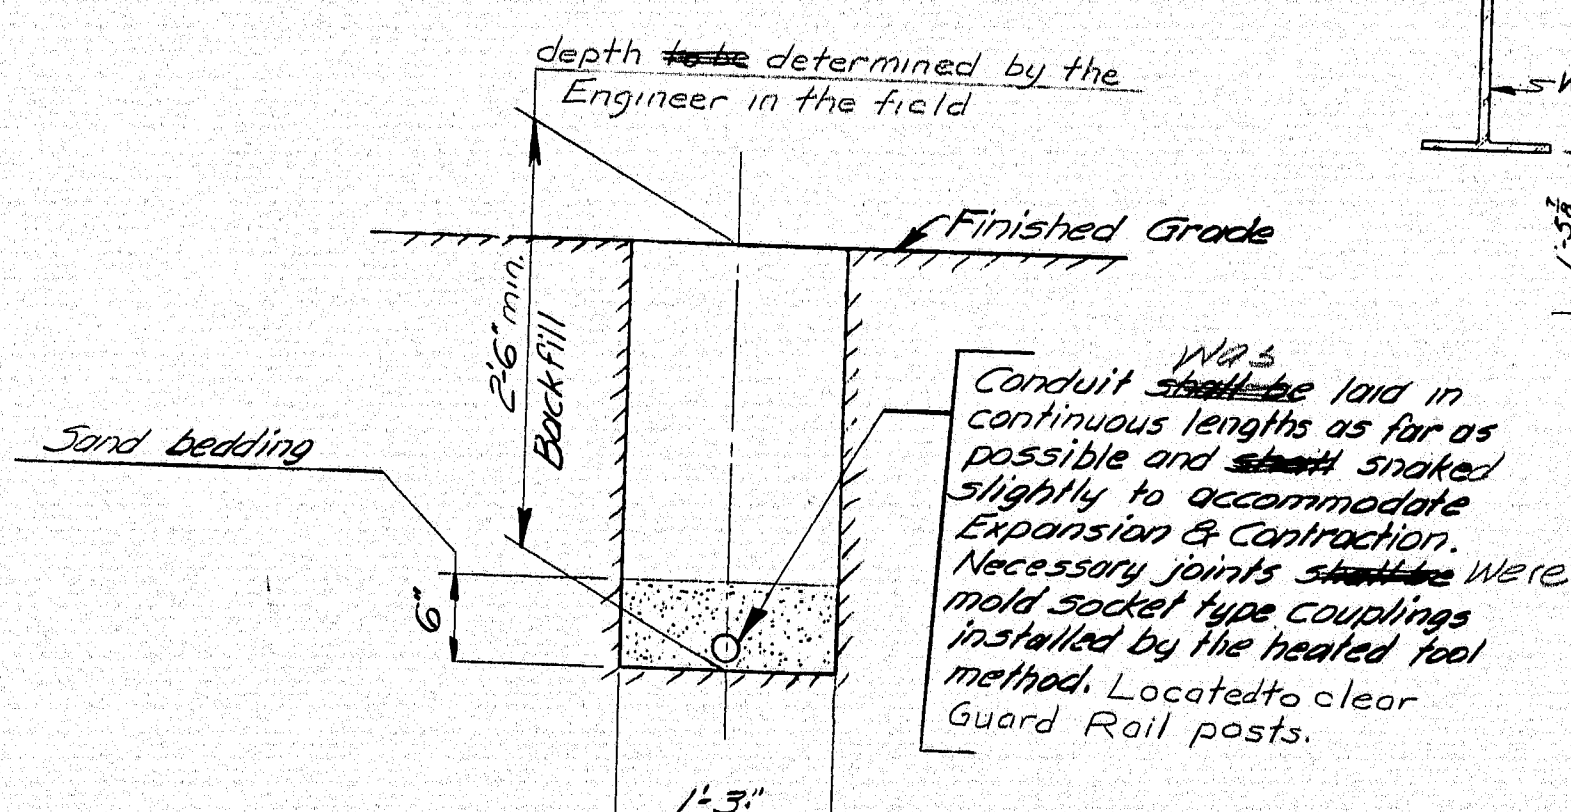 depth to be determined by the
Engineer in the field
Finished Grade
2'-6" min.
Backfill
Sand bedding
6"
Was
Conduit shall be laid in
continuous lengths as far as
possible and shall snaked
slightly to accommodate
Expansion & Contraction.
Necessary joints shall be Were
mold socket type couplings
installed by the heated tool
method. Located to clear
Guard Rail posts.
1'-3"
1'-5⅞